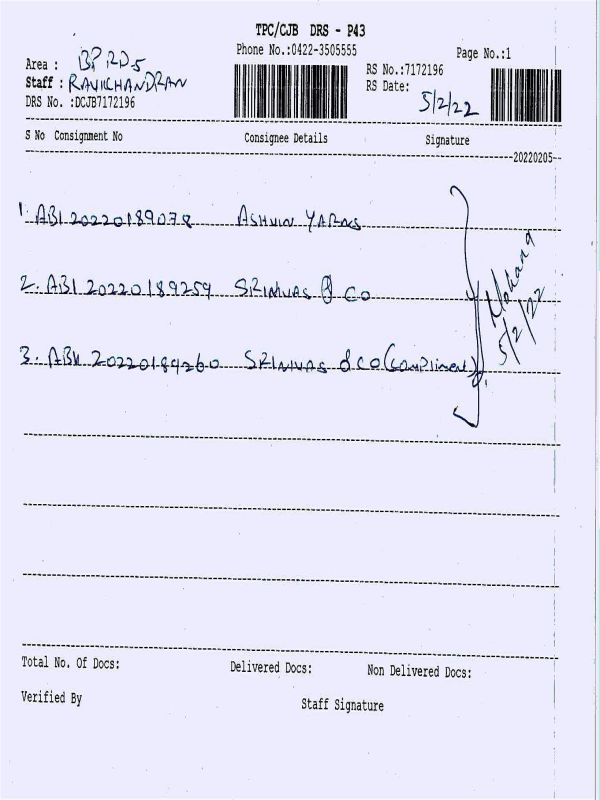 TPC/CJB DRS - P43
Phone No.:0422-3505555
Page No.:1
Area : BP RD5
RS No.:7172196
Staff : RAVICHANDRAN
RS Date: 5/2/22
DRS No. :DCJB7172196
S No Consignment No Consignee Details Signature
20220205
1. ABI 20220189078 ASHWIN YARNS
2. ABI 20220189259 SRINIVAS & CO
3. 20220189260 SRINIVAS & CO (Compliment)
5/2/22
Total No. Of Docs: Delivered Docs: Non Delivered Docs:
Verified By Staff Signature